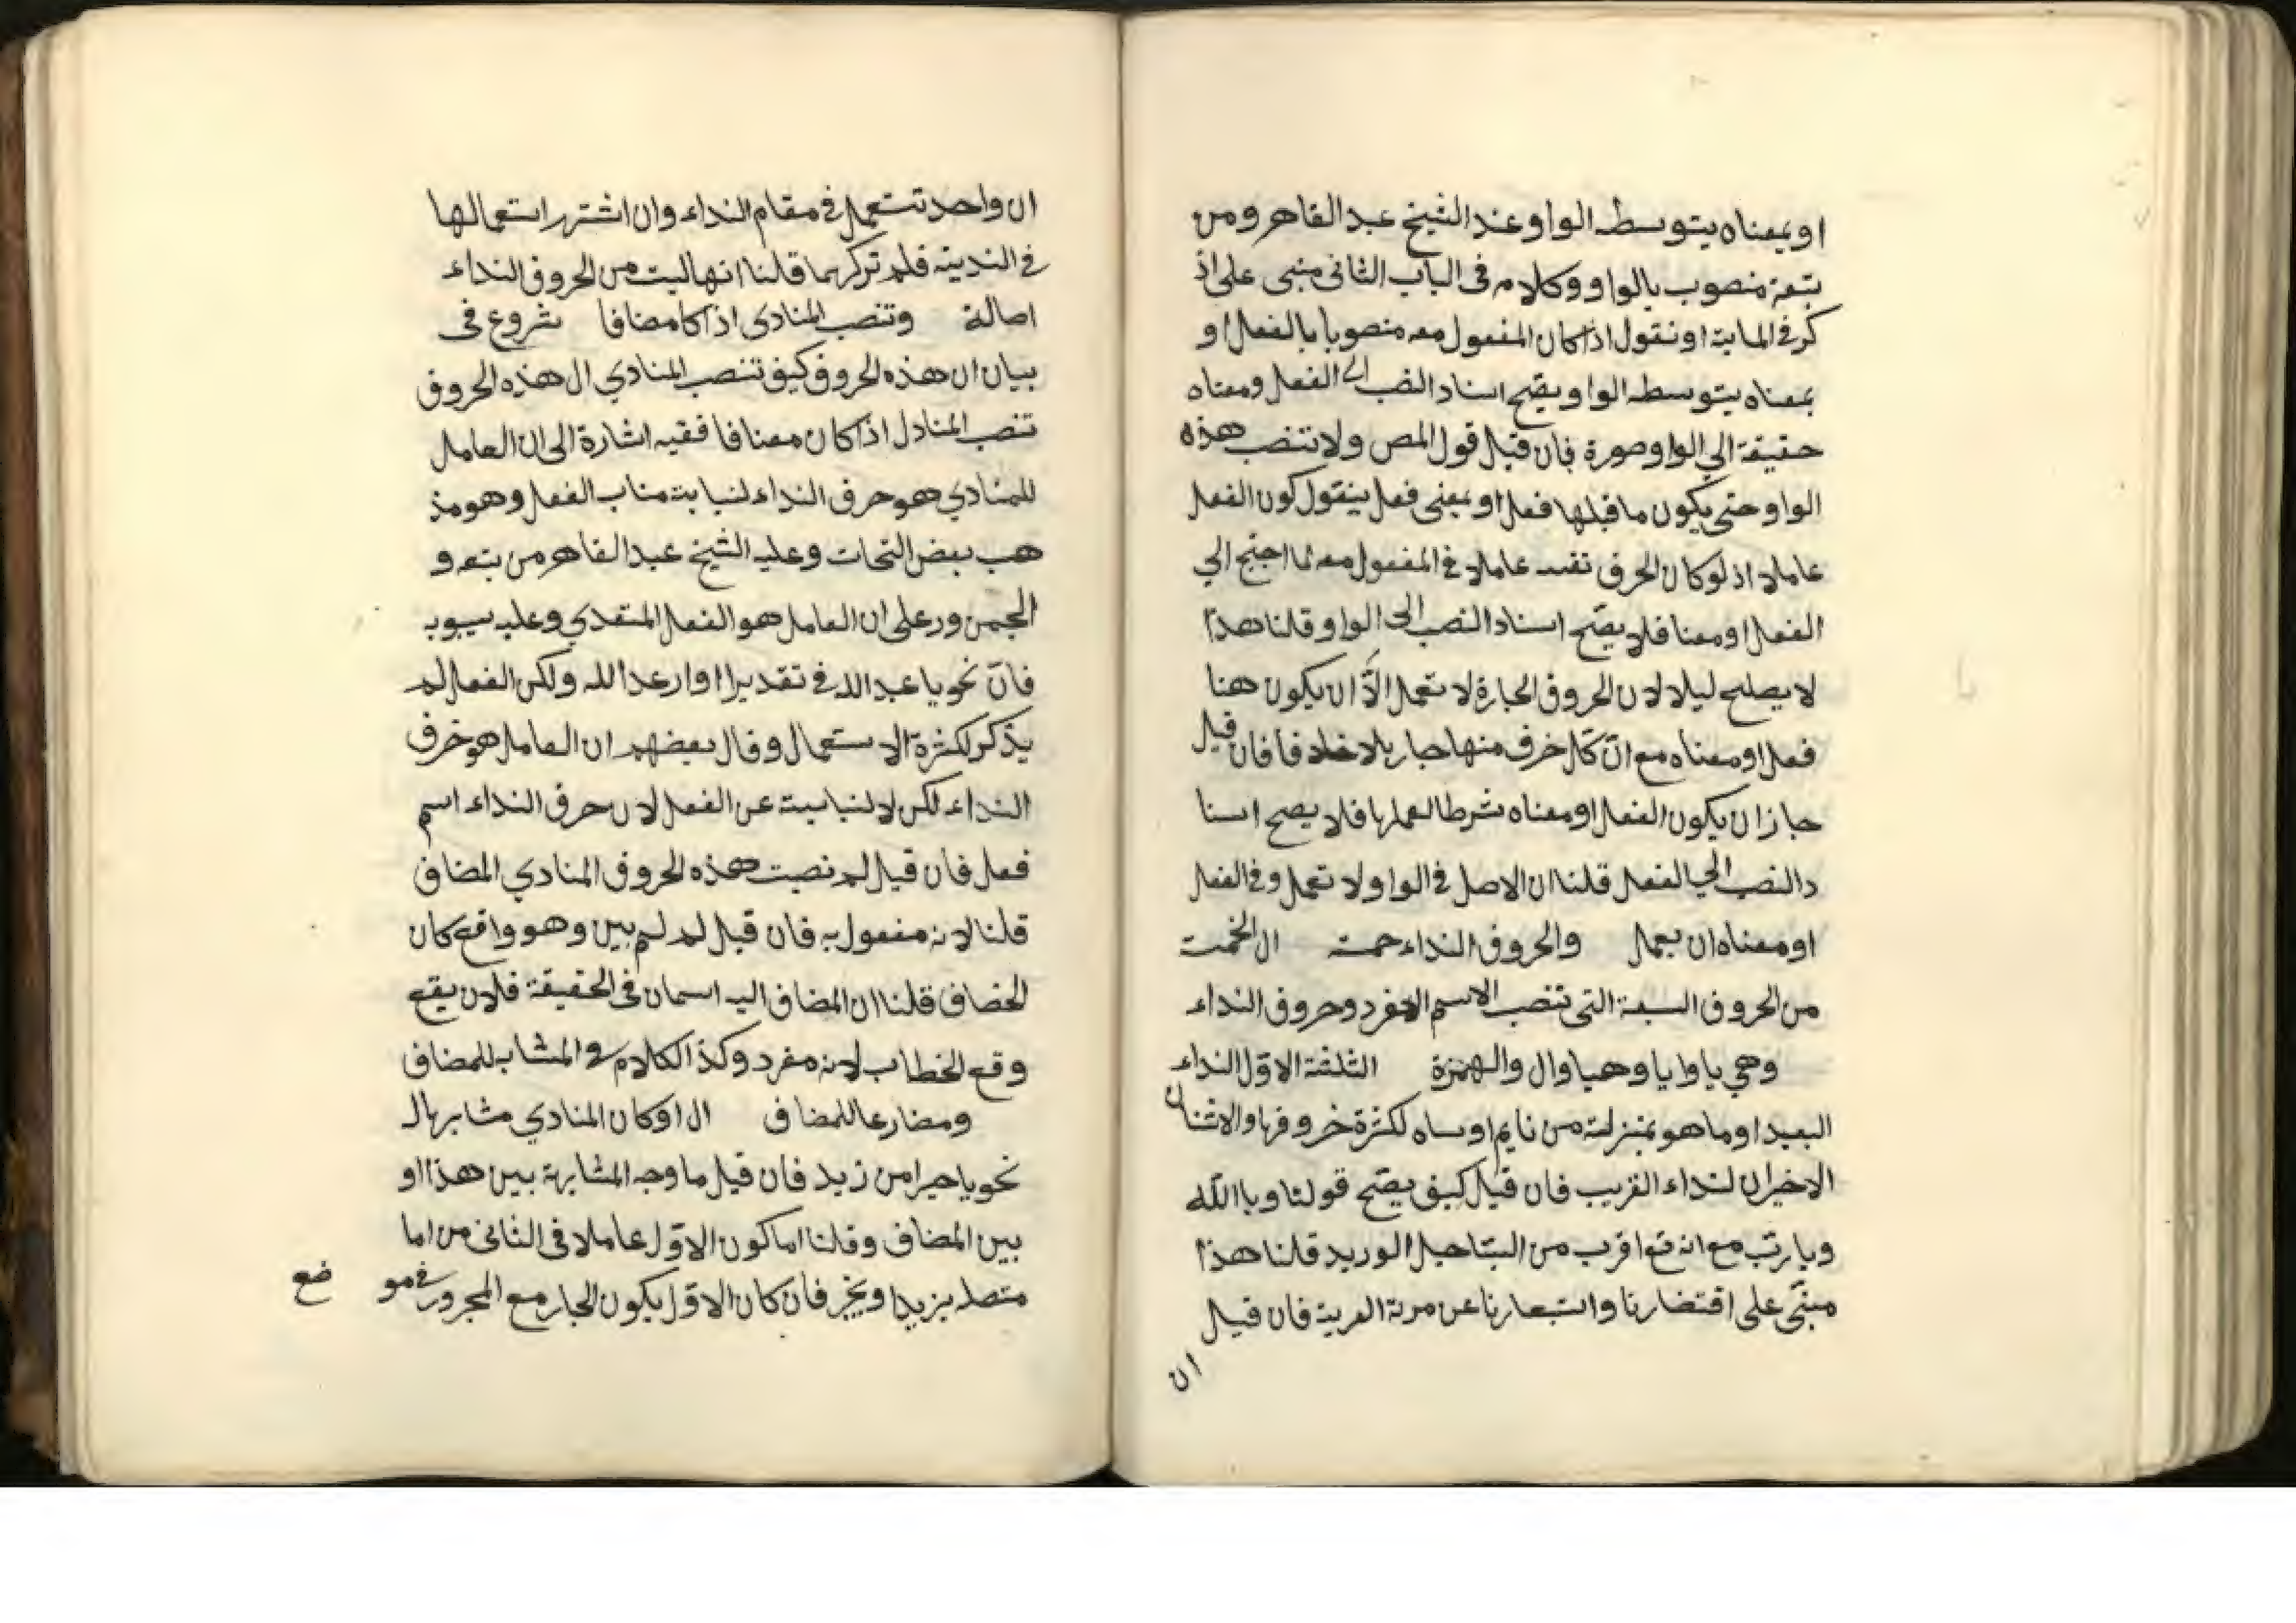 او بمعناه يتوسط الواو عند الشيخ عبد القاهر ومن
تبعة منصوب بالواو وكلامه فى الباب الثانى منبى على اذ
كر فى الماىبة او نقول اذا كان المفعول معه منصوبا بالفعل او
بمعناه يتوسط الواو يصّح اسناد النصب الى الفعل ومعناه
حقيقة الي الواو صورة فان قيل قول المص ولا تنصب هذه
الواو حتى يكون ما قبلها فعل او بمعنى فعل ينقول كون الفعل
عاملا اذ لو كان الحرف نفسه عاملا فى المفعول معه لما اجتج الي
الفعل او معنا فلا يصّح اسناد النصب الى الواو قلنا هذا
لا يصلح ليلا لان الحروف الجارة لا تعمل الاّ ان يكون هنا
فعل او معناه مع انّ كل خرف منها جار بلا خلافا فان قيل
جاز ان يكون الفعل او معناه شرطا لعملها فلا يصح اسنا
د النصب الي الفعل قلنا ان الاصل فى الواو لا تعمل وفى الفعل
او معناه ان يعمل والحروف النداء خمسة ال الخمست
من الحروف السبعة التى تنصب الاسم المفرد وحروف النداء
وهي يا وايا وهيا وال والهمزة الثلثة الاوّل النداء
البعيد او ما هو بمنزلته من نايم او ساه لكثرة خروفها والاثنان
الاخيران لنداء القريب فان قيل كيف يصّح قولنا ويا اللّه
ويا ربّ مع انه تع اقرب من حبل الوريد قلنا هذا
مبنّى على اقتضارنا واستبعارنا عن مرتة القربة فان قيل
ان
ان واحد تستعمل فى مقام النداء وان اشتهر استعمالها
فى الندبة فلم تركها قلنا انها ليست من الحروف النداء
اصالة وتنصب المنادى اذا كا مضافا شروع فى
بيان ان هذه الحروف كيف تنصب المنادي ال هذه الحروف
تنصب المنادل اذا كان مضافا ففيه اشارة الى ان العامل
للمنادي هو حرف النداء لنيابته مناب الفعل وهو مذ
هب بعض النحات وعليه الشيخ عبد القاهر من بتعه و
الجمهور على ان العامل هو الفعل المتعدي وعليه سيبويه
فانّ نحو يا عبد الله فى تقدير ا وارعد الله ولكن الفعل لم
يذّكر لكثرة الاستعمال وقال بعضهم ان العامل هو خرف
النداء لكن لا لنيابية عن الفعل لان حرف النداء اسم
فعل فان قيل لم نصبت هذه الحروف المنادي المضاف
قلنا لانه مفعول به فان قيل لم لم يبن وهو واقع كان
الخضاف قلنا ان المضاف اليه اسمان فى الحقيقة فلان يقع
وقع الخطاب لانه مفرد وكذا الكلام فى المشابه للمضاف
ومضارعا للمضاف ال او كان المنادي مشابها لـ
نحو يا خيرا من زيد فان قيل ما وجه المشابهة بين هذا او
بين المضاف وقلنا اما كون الاوّل عاملا فى الثانى من اما
متصلا بزيد او يخبر فان كان الاوّل يكون الجار مع المجرور فى مو
ضع